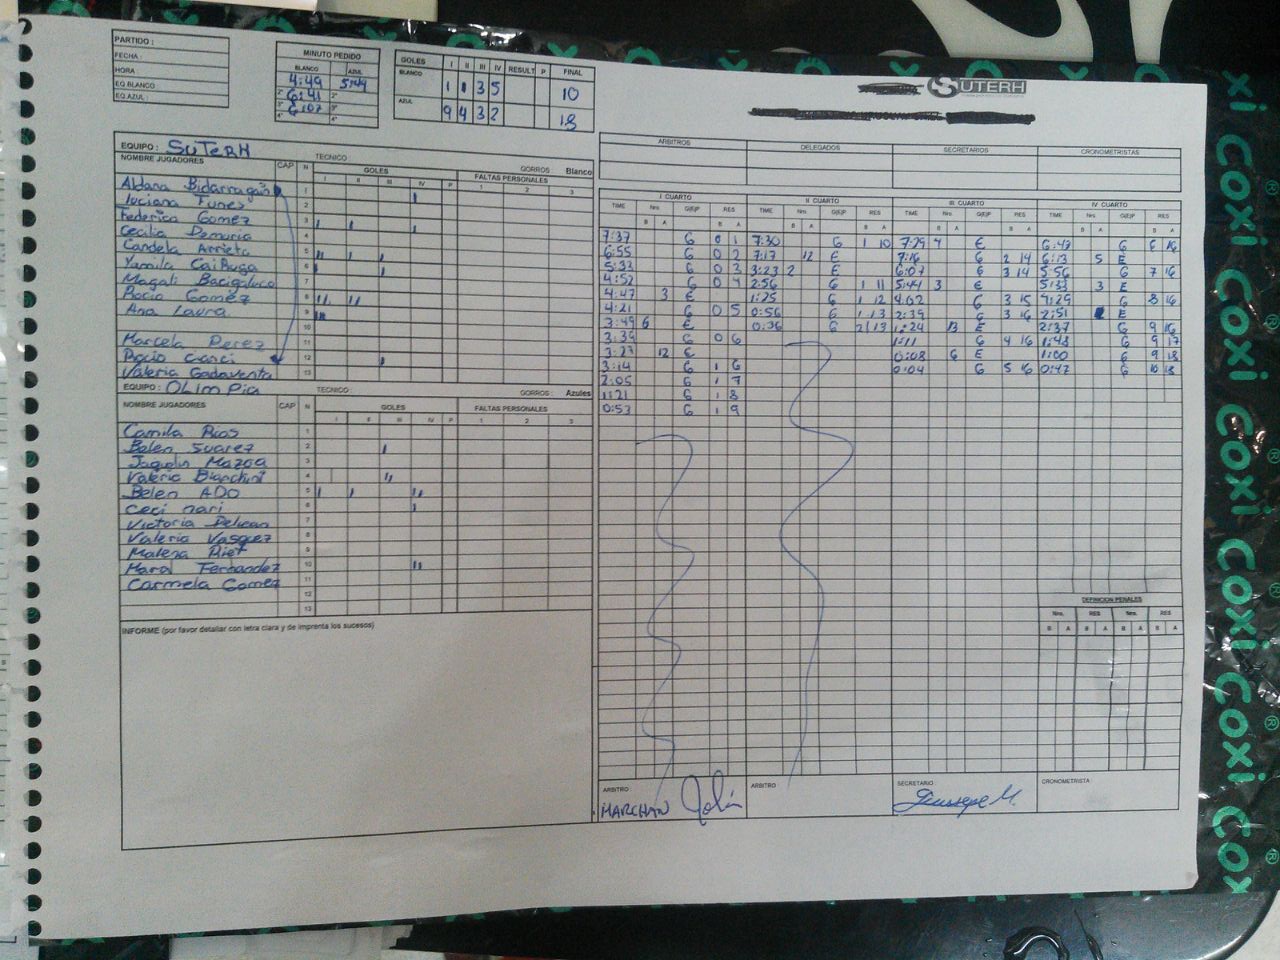 PARTIDO :
FECHA :
HORA
EQ BLANCO
EQ AZUL :
MINUTO PEDIDO
BLANCO AZUL
4:49 5:44
2° 6:41 2°
3° 6:07 3°
4° 4°
GOLES I II III IV RESULT P FINAL
BLANCO 1 1 3 5 10
AZUL 9 4 3 2 18
SUTERH
EQUIPO : SUTERH
TECNICO GORROS Blanco
NOMBRE JUGADORES CAP N GOLES FALTAS PERSONALES
I II III IV P 1 2 3
Aldana Bidarragain 1
Luciana Funes
Federica Gomez 3
Cecilia Demuria 4
Candela Arrieta 5
Yamila 6
Magali Bacigaluco 7
Rocio Gomez 8
Ana Laura 9
10
Marcela Perez 11
Rocio Casci 12
Valeria Gadaventa 13
EQUIPO : OLimPia
TECNICO GORROS : Azules
NOMBRE JUGADORES CAP N GOLES FALTAS PERSONALES
I II III IV P 1 2 3
Camila Rios 1
Belen Suarez 2
Jaquelin Mazoa 3
Valeria Bianchini 4
Belen ADO 5
Ceci nari 6
Victoria 7
Valeria Vasquez 8
Malena Riet 9
Maral Fernandez 10
Carmela Gomez 11
12
13
INFORME (por favor detallar con letra clara y de imprenta los sucesos)
ARBITROS DELEGADOS SECRETARIOS CRONOMETRISTAS
I CUARTO
TIME Nrs. G(E)P RES
B A B A
7:37 G 0 1
6:55 G 0 2
5:32 G 0 3
4:52 G 0 4
4:47 3 E
4:21 G 0 5
3:49 6 E
3:39 G 0 6
3:27 12 E
3:14 G 1 6
2:05 G 1 7
1:21 G 1 8
0:53 G 1 9
II CUARTO
TIME Nrs. G(E)P RES
B A B A
7:30 G 1 10
7:17 12 E
3:23 2 E
2:56 G 1 11
1:25 G 1 12
0:56 G 1 13
0:36 G 2 13
III CUARTO
TIME Nrs. G(E)P RES
B A B A
7:29 4 E
7:16 G 2 14
6:07 G 3 14
5:44 3 E
4:02 G 3 15
2:39 G 3 16
1:24 13 E
1:11 G 4 16
0:08 6 E
0:04 G 5 16
IV CUARTO
TIME Nrs. G(E)P RES
B A B A
6:42 G 6 16
6:13 5 E
5:56 G 7 16
5:33 3 E
4:29 G 8 16
2:51 E
2:37 G 9 16
1:43 G 9 17
1:00 G 9 18
0:47 G 10 18
DEFINICION PENALES
Nrs. RES Nrs. RES
B A B A B A B A
ARBITRO ARBITRO SECRETARIO CRONOMETRISTA
MARCHAN
Giussepe M.
Coxi Coxi Coxi Coxi Coxi Coxi